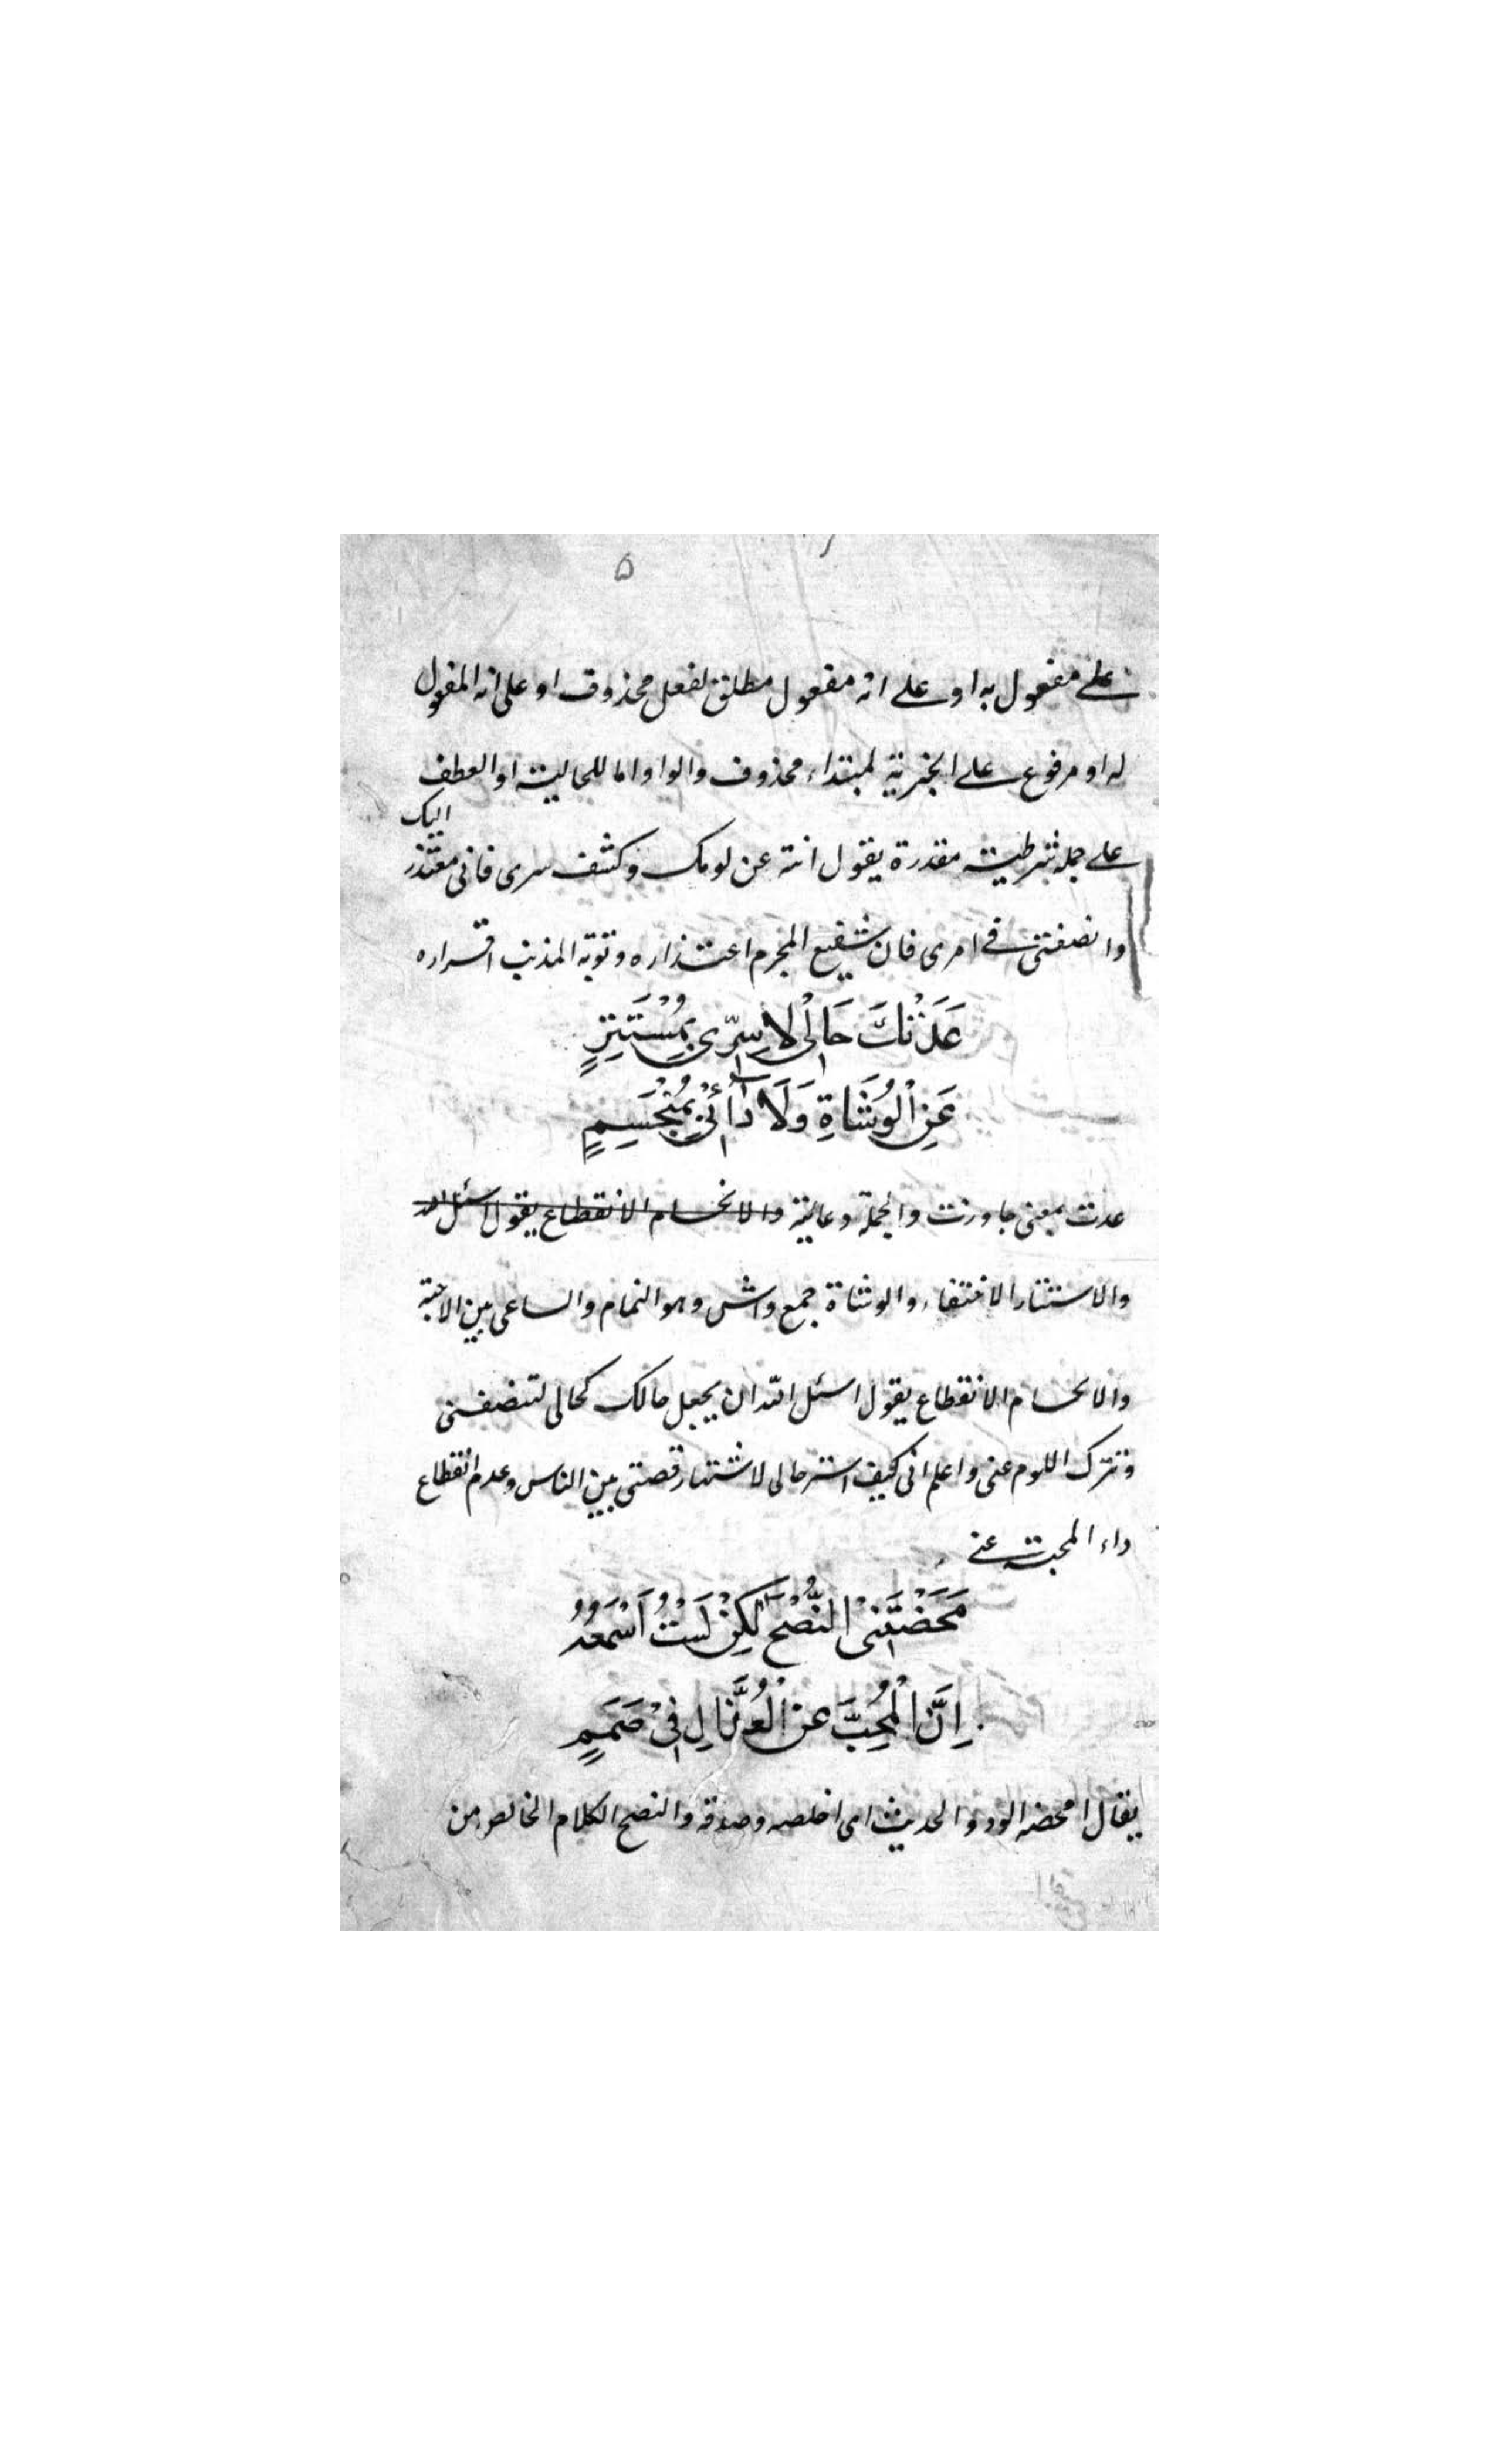 ۵
على مفعول به او على انه مفعول مطلق لفعل محذوف او على انه المفعول
له او مرفوع على الخبرية لمبتداء محذوف والواو اما للحالية او العطف
اليك
على جملة شرطية مقدرة يقول انته عن لومك وكشف سرى فانى معتذر
وانصفتنى فى امرى فان شفيع المجرم اعتذاره وتوبة المذنب اقراره
عَدَتْكَ حَالِىْ لَا سِرِّى بِمُسْتَتِرٍ
عَنِ الْوُشَاةِ وَلَا دَائِىْ بِمُنْحَسِمٍ
عدت بمعنى جاوزت والجملة دعائية والانحسام الانقطاع يقول اسئل الله
والاستتار الاختفاء والوشاة جمع واش وهو النمام والساعى بين الاحبة
والانحسام الانقطاع يقول اسئل الله ان يجعل حالك كحالى لتنصفنى
وتترك اللوم عنى واعلم انى كيف استر حالى لاشتهار قصتى بين الناس وعدم انقطاع
داء المحبة عنى
مَحَضْتَنِىْ النُّصْحَ لٰكِنْ لَسْتُ اَسْمَعُهُ
اِنَّ الْمُحِبَّ عَنِ الْعُذَّالِ فِىْ صَمَمٍ
يقال امحضه الود والحديث اى اخلصه وصدقه والنصح الكلام الخالص من